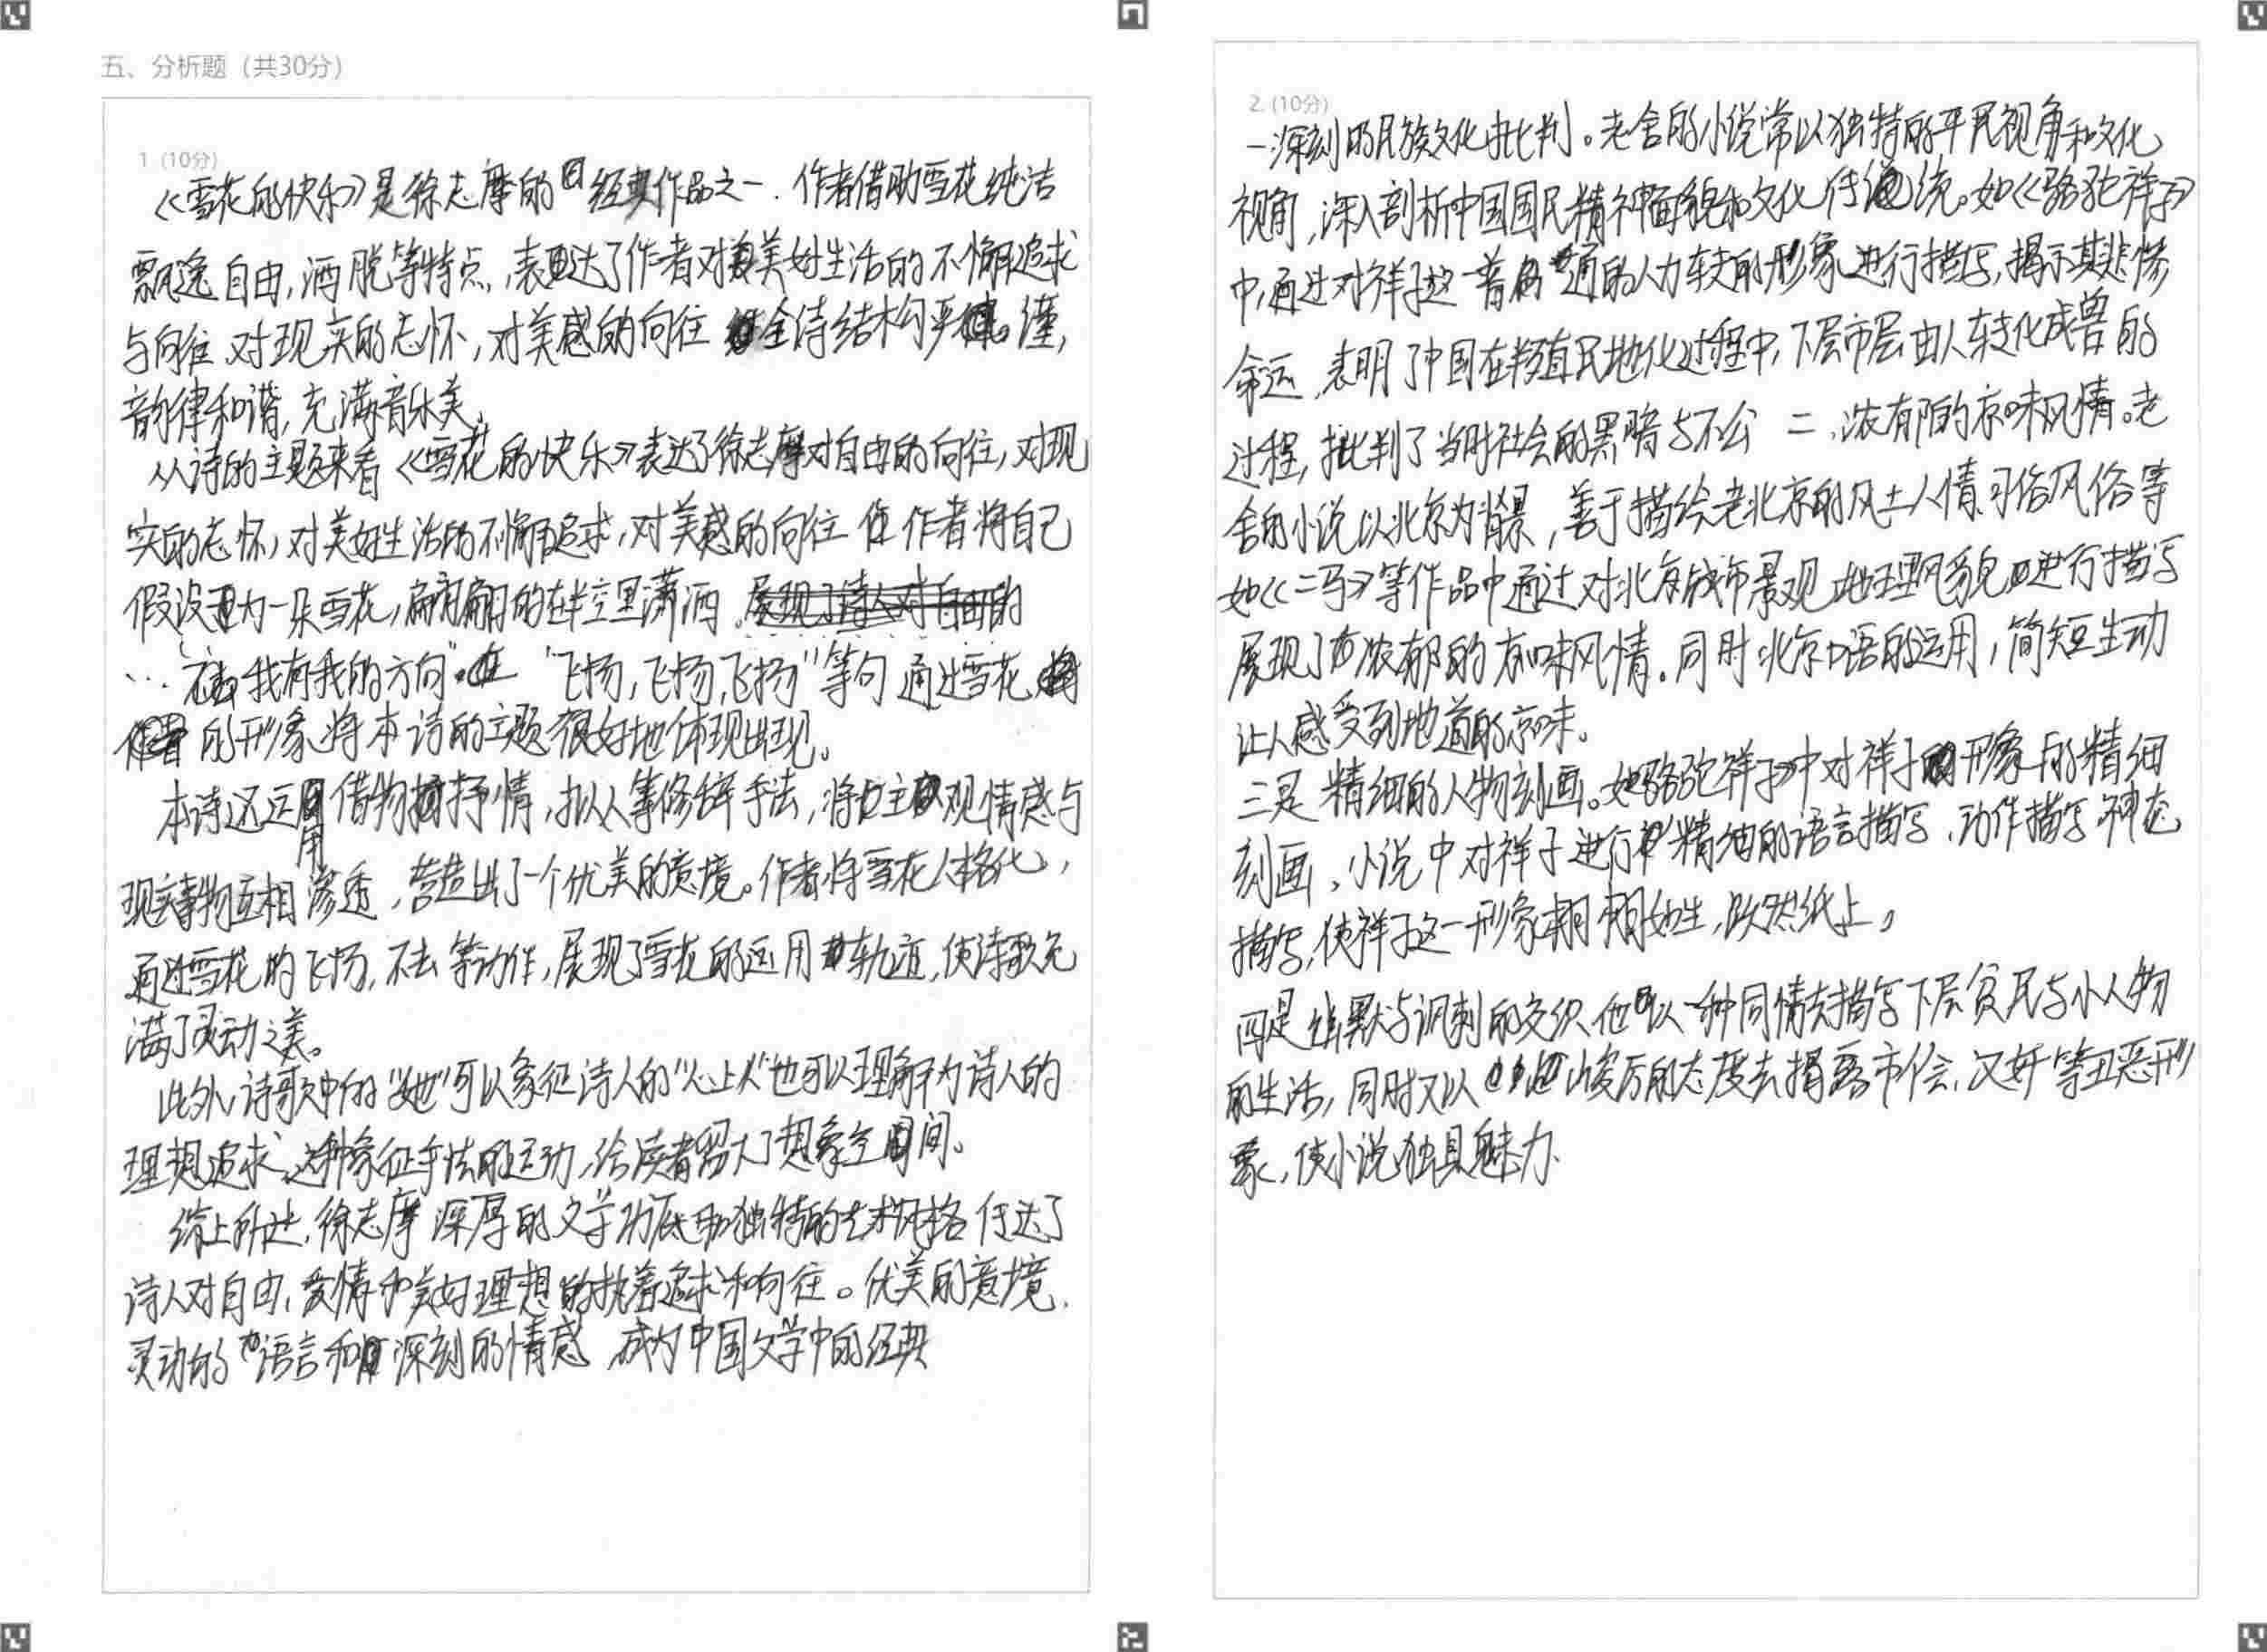 五、分析题（共30分）
1 (10分)
《雪花的快乐》是徐志摩的经典作品之一．作者借助雪花纯洁
飘逸自由，洒脱等特点，表达了作者对美好生活的不懈追求
与向往 对现实的忘怀，对美感的向往 全诗结构严谨，
韵律和谐，充满音乐美。
从诗的主题来看《雪花的快乐》表达了徐志摩对自由的向往，对现
实的忘怀，对美好生活的不懈追求，对美感的向往 作者将自己
假设为一朵雪花，翩翩的在半空里潇洒。展现了诗人对自由的
… 我有我的方向" "飞扬，飞扬，飞扬"等句 通过雪花
的形象，将本诗的主题很好地体现出现。
本诗还运用借物抒情，拟人等修辞手法，将主观情感与
现实事物互相渗透，营造出了一个优美的意境。作者将雪花人格化，
通过雪花的飞扬，不去等动作，展现了雪花的运用轨迹，使诗歌充
满了灵动之美。
此外，诗歌中的"她"可以象征诗人的"心上人"也可以理解为诗人的
理想追求，这种象征手法的运动，给读者留大了想象空间。
综上所述，徐志摩深厚的文学功底和独特的艺术风格 传达了
诗人对自由、爱情和美好理想的执着追求和向往。优美的意境、
灵动的语言和深刻的情感，成为中国文学中的经典
2. (10分)
一深刻的民族文化批判。老舍的小说常以独特的平民视角和文化
视角，深入剖析中国国民精神面貌和文化传统。如《骆驼祥子》
中，通过对祥子这一普通的人力车夫的形象进行描写，揭示其悲惨
命运，表明了中国在半殖民地化过程中，下层市层由人转化成兽的
过程，批判了当时社会的黑暗与不公 二，浓有郁的京味风情。老
舍的小说以北京为背景，善于描绘老北京的风土人情、习俗风俗等
如《二马》等作品中通过对北京城市景观、地理风貌进行描写
展现了浓郁的京味风情。同时北京口语的运用，简短生动
让人感受到地道的京味。
三是精细的人物刻画。如《骆驼祥子》中对祥子形象的精细
刻画，小说中对祥子进行精细的语言描写，动作描写，神态
描写，使祥子这一形象栩栩如生，跃然纸上。
四是幽默与讽刺的交织，他以一种同情去描写下层贫民与小人物
的生活，同时又以严厉的态度去揭露市侩，汉奸等丑恶形
象，使小说独具魅力．